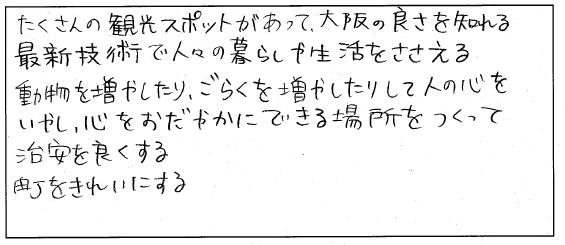 たくさんの観光スポットがあって、大阪の良さを知れる
最新技術で人々の暮らしや生活をささえる
動物を増やしたり、ごらくを増やしたりして人の心を
いやし、心をおだやかにできる場所をつくって
治安を良くする
町をきれいにする